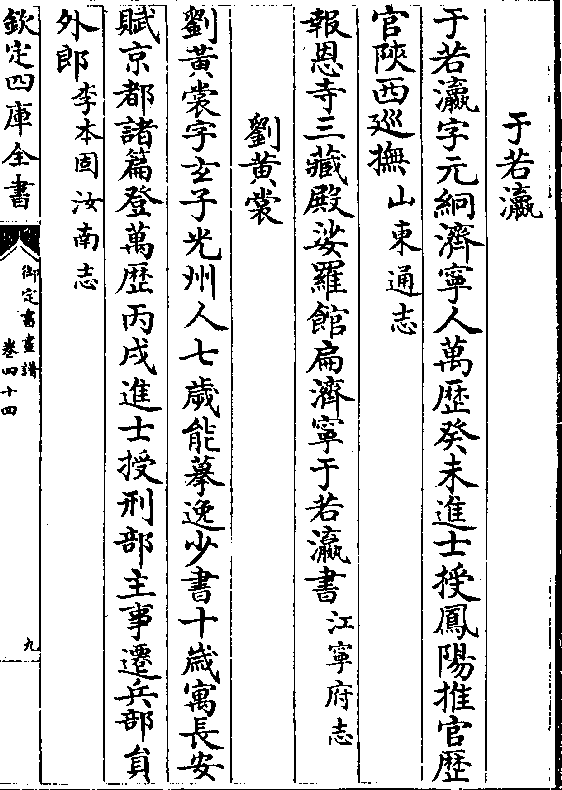 于若瀛
于若瀛字元絅濟寧人萬歴癸未進士授鳳陽推官歴
官陝西廵撫山東通志
報恩寺三藏殿娑羅館扁濟寧于若瀛書江寧府志
劉黃裳
劉黃裳字玄子光州人七歲能摹逸少書十歲寓長安
賦京都諸篇登萬歴丙戌進士授刑部主事遷兵部貟
外郎李本固汝南志
欽定四庫全書
御定書畫譜
卷四十四
九